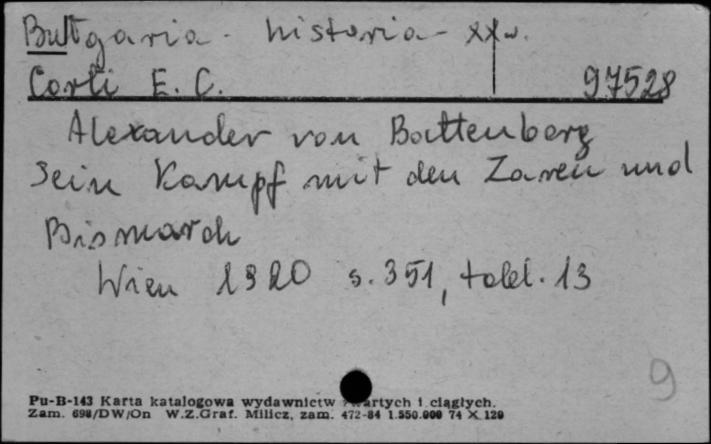 Bułgaria - historia - XX w.
Corti E. C. 97528
Alexander von Battenberg
Sein Kampf mit den Zaren und
Bismarck
Wien 1920 s. 351, tabl. 13
9
Pu-B-143 Karta katalogowa wydawnictw zwartych i ciągłych.
Zam. 698/DW/On W.Z.Graf. Milicz, zam. 472-84 1.550.000 74 X 120